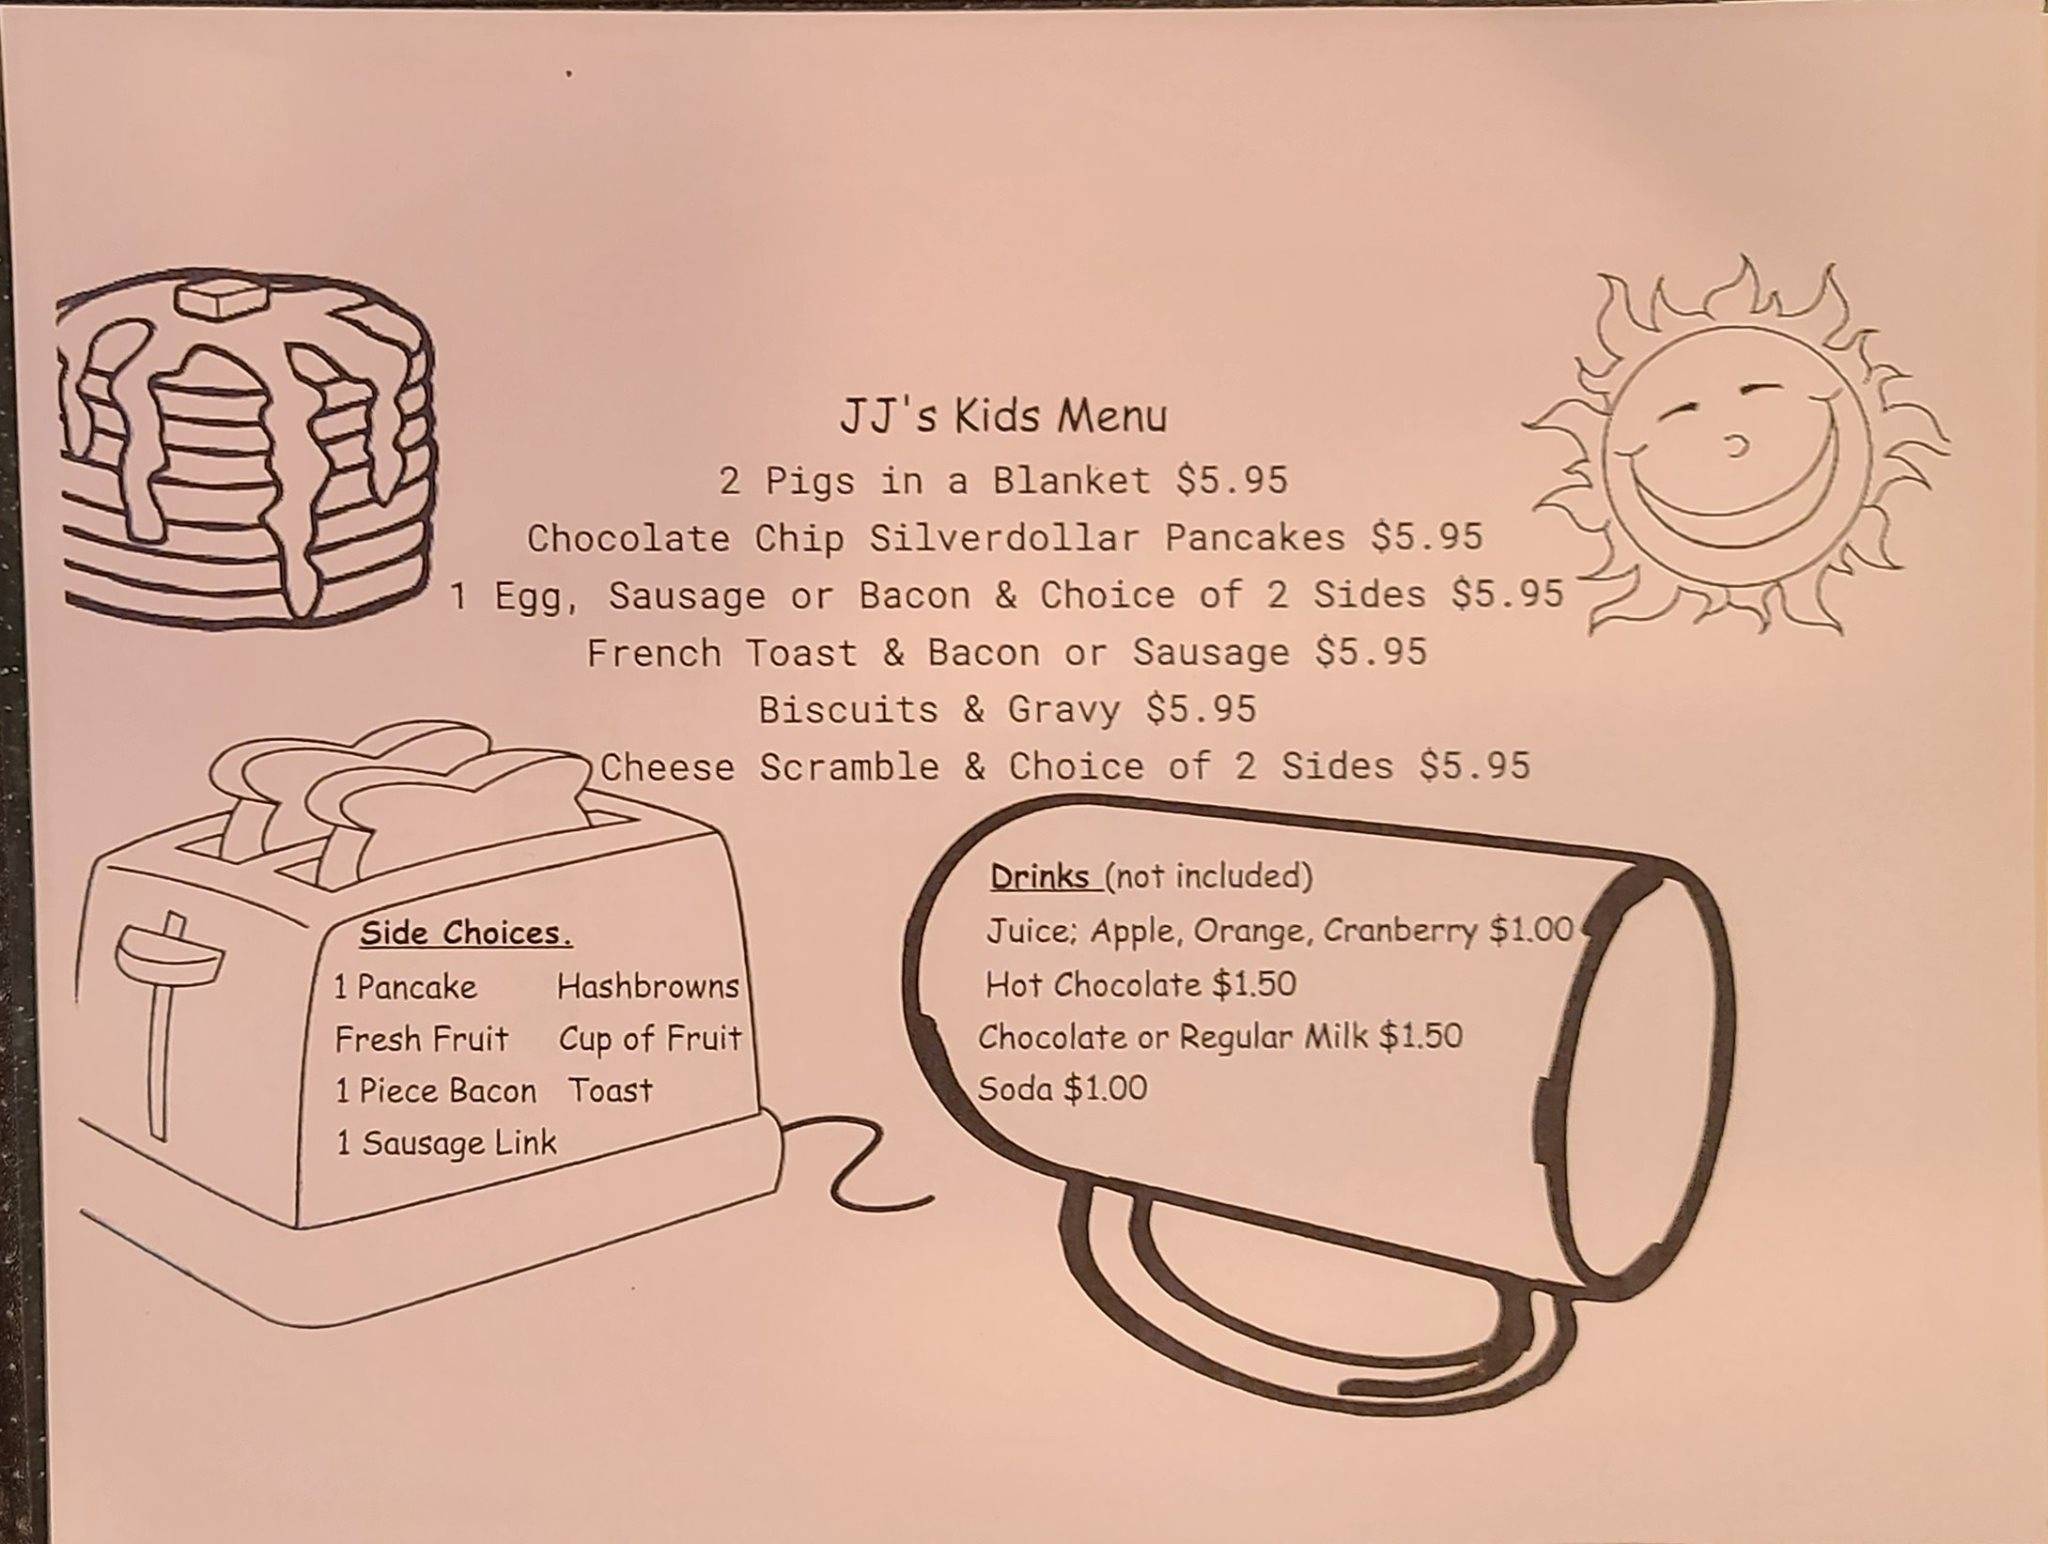 JJ's Kids Menu
2 Pigs in a Blanket $5.95
Chocolate Chip Silverdollar Pancakes $5.95
1 Egg, Sausage or Bacon & Choice of 2 Sides $5.95
French Toast & Bacon or Sausage $5.95
Biscuits & Gravy $5.95
Cheese Scramble & Choice of 2 Sides $5.95
Side Choices.
1 Pancake Hashbrowns
Fresh Fruit Cup of Fruit
1 Piece Bacon Toast
1 Sausage Link
Drinks (not included)
Juice; Apple, Orange, Cranberry $1.00
Hot Chocolate $1.50
Chocolate or Regular Milk $1.50
Soda $1.00